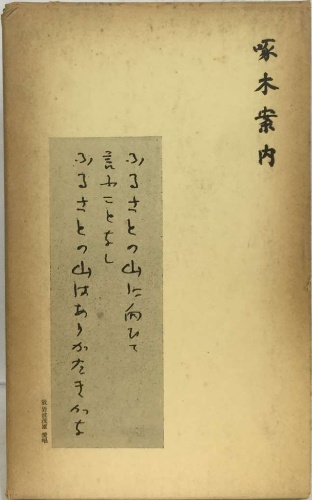 啄木案内
ふるさとの山に向ひて
言ふことなし
ふるさとの山はありがたきかな